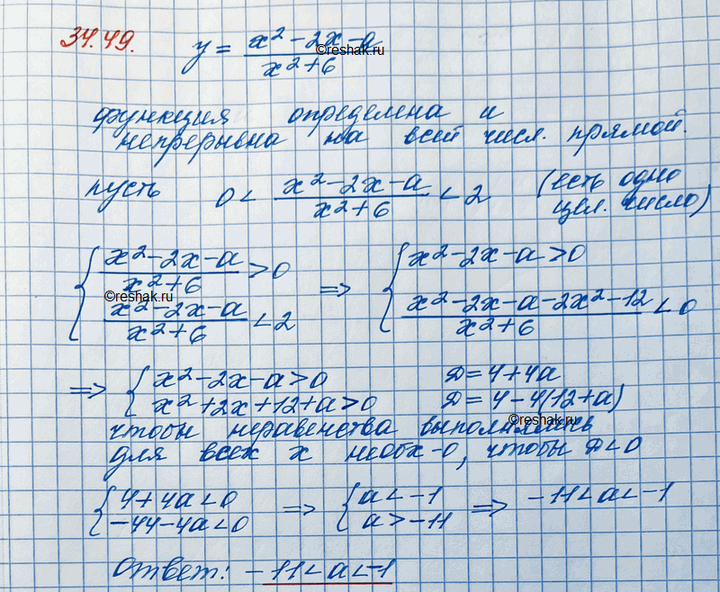 34.49. y = (x² - 2x - a)/(x² + 6)
©reshak.ru
функция определена и
непрерывна на всей числ. прямой.
пусть 0 < (x² - 2x - a)/(x² + 6) < 2 (есть одно
цел. число)
{ (x² - 2x - a)/(x² + 6) > 0 ⇒ { x² - 2x - a > 0
©reshak.ru
(x² - 2x - a)/(x² + 6) < 2 (x² - 2x - a - 2x² - 12)/(x² + 6) < 0
⇒ { x² - 2x - a > 0 D = 4 + 4a
x² + 2x + 12 + a > 0 D = 4 - 4(12 + a)
©reshak.ru
чтобы неравенства выполнялись
для всех x необх-о, чтобы D < 0
{ 4 + 4a < 0 ⇒ { a < -1 ⇒ -11 < a < -1
-44 - 4a < 0 a > -11
Ответ: -11 < a < -1